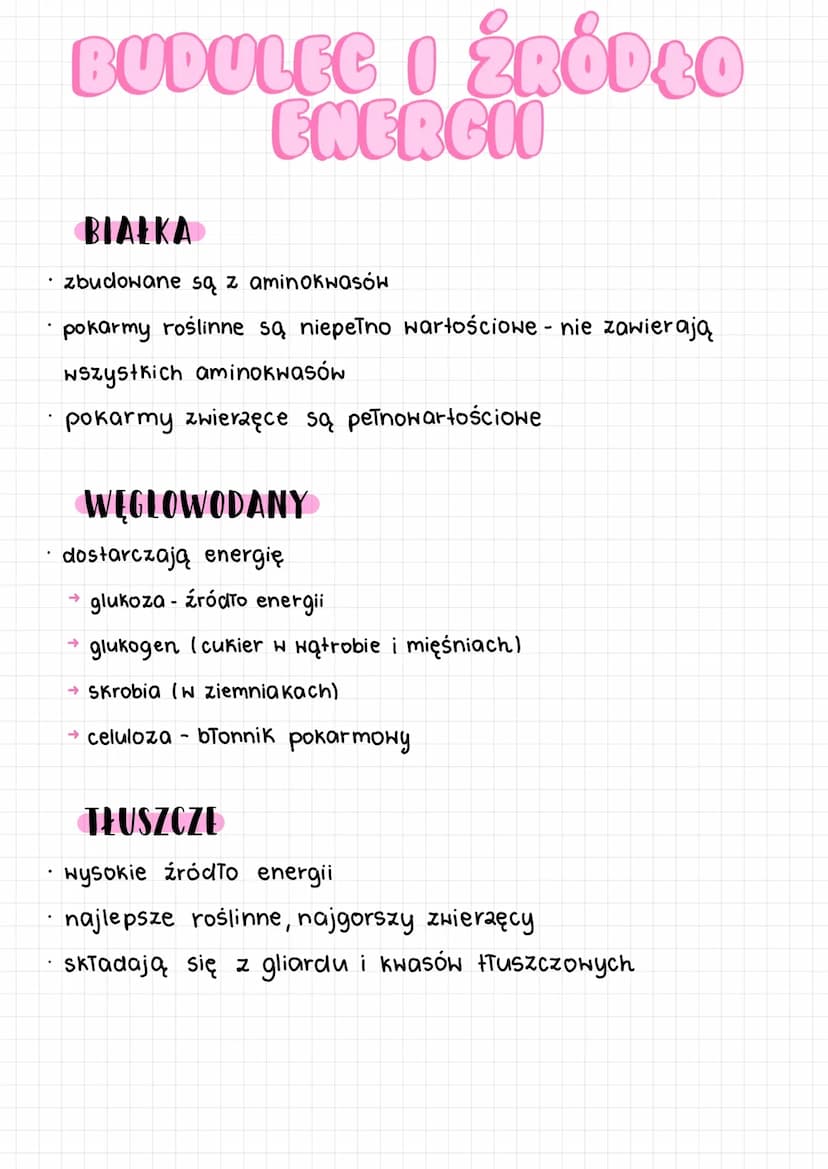 BUDULEC I ŹRÓDŁO
ENERGII
BIAŁKA
· zbudowane są z aminokwasów
· pokarmy roślinne są niepełno wartościowe - nie zawierają
wszystkich aminokwasów
· pokarmy zwierzęce są pełnowartościowe
WĘGLOWODANY
· dostarczają energię
→ glukoza - źródło energii
→ glukogen (cukier w wątrobie i mięśniach)
→ skrobia (w ziemniakach)
→ celuloza - błonnik pokarmowy
TŁUSZCZE
· wysokie źródło energii
· najlepsze roślinne, najgorszy zwierzęcy
· składają się z gliardu i kwasów tłuszczowych